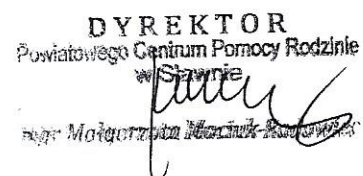 DYREKTOR
Powiatowego Centrum Pomocy Rodzinie
w Sławnie
mgr Małgorzata